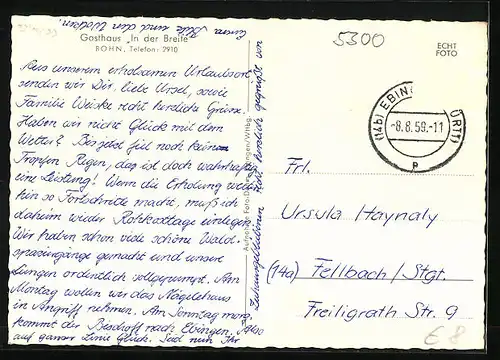 5300
ECHT
FOTO
Gasthaus „In der Breite"
BOHN, Telefon: 2910
Aus unserem erholsamen Urlaubsort
senden wir Dir, liebe Ursel, sowie
Familie Weiske recht herzliche Grüsse.
Haben wir nicht Glück mit dem
Wetter? Bis jetzt fiel noch keinen
Tropfen Regen, das ist doch wahrhaftig
eine Leistung! Wenn die Erholung weiter-
hin so Fortschritte macht, muß ich
daheim wieder Rohkosttage einlegen.
Wir haben schon viele schöne Wald-
spaziergänge gemacht und unsere
Lungen ordentlich vollgepumpt. Am
Montag wollen wir das Nägelehaus
in Angriff nehmen. Am Sonntag morg.
kommt der Bischoff nach Ebingen. Also
auf ganzer Linie Glück. Seid nun Ihr
recht herzlich gegrüßt von
Euren und den
(14b) EBINGEN (WÜRTT)
-8.8.59.-11
p
Frl.
Ursula Haynaly
(14a) Fellbach/Stgt.
Freiligrath Str. 9
€ 8